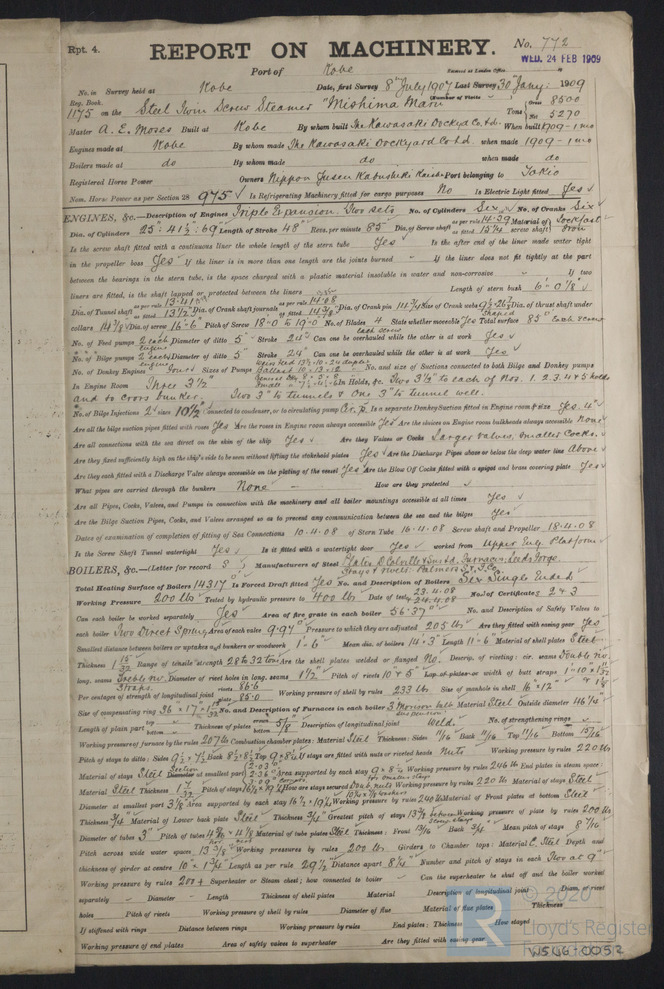 Rpt. 4.
REPORT ON MACHINERY.
No. 772
WED. 24 FEB 1909
Port of Kobe
Received at London Office
No. in Survey held at Kobe Date, first Survey 8th July 1907 Last Survey 30 Jany: 1909
Reg. Book.
(Number of Visits
1175 on the Steel Twin Screw Steamer "Mishima Maru
Tons { Gross 8500
Net 5270
Master A. E. Moses Built at Kobe By whom built The Kawasaki Dockyd Co. Ltd. When built 1909-1 mo
Engines made at Kobe By whom made The Kawasaki Dockyard Co Ltd. when made 1909-1 mo
Boilers made at do By whom made do when made do
Registered Horse Power Owners Nippon Yusen Kabushiki Kaisha Port belonging to Tokio
Nom. Horse Power as per Section 28 975 Is Refrigerating Machinery fitted for cargo purposes No Is Electric Light fitted Yes
ENGINES, &c.—Description of Engines Triple Expansion. Two sets No. of Cylinders Six No. of Cranks Six
Dia. of Cylinders 25": 41½": 69" Length of Stroke 48" Revs. per minute 85 Dia. of Screw shaft as per rule 14.39 as fitted 15¼ Material of screw shaft Iron
Is the screw shaft fitted with a continuous liner the whole length of the stern tube Yes Is the after end of the liner made water tight
in the propeller boss Yes If the liner is in more than one length are the joints burned " If the liner does not fit tightly at the part
between the bearings in the stern tube, is the space charged with a plastic material insoluble in water and non-corrosive " If two
liners are fitted, is the shaft lapped or protected between the liners Length of stern bush 6'-0⅞"
Dia. of Tunnel shaft as per rule 13.41 as fitted 13½ Dia. of Crank shaft journals as per rule 14.08 as fitted 14¾ Dia. of Crank pin 14¾ Size of Crank webs Dia. of thrust shaft under
collars 14⅞ Dia. of screw 16'-6" Pitch of Screw 18'-0 to 19'-0" No. of Blades 4 each screw State whether moveable Yes Total surface 85 Each Screw
No. of Feed pumps 2 each engine Diameter of ditto 5" Stroke 24" Can one be overhauled while the other is at work Yes
No. of Bilge pumps 2 each engine Diameter of ditto 5" Stroke 24" Can one be overhauled while the other is at work Yes
No. of Donkey Engines Four Sizes of Pumps No. and size of Suctions connected to both Bilge and Donkey pumps
In Engine Room Three 3½" In Holds, &c. Two 3½" to each of Nos. 1. 2. 3. 4 & 5 holds
Two 3" to tunnels & One 3" to tunnel well.
No. of Bilge Injections 2 sizes 10½" Connected to condenser, or to circulating pump Cir. p. Is a separate Donkey Suction fitted in Engine room & size Yes. 4"
Are all the bilge suction pipes fitted with roses Yes Are the roses in Engine room always accessible Yes Are the sluices on Engine room bulkheads always accessible None
Are all connections with the sea direct on the skin of the ship Yes Are they Valves or Cocks Larger valves. Smaller Cocks.
Are they fixed sufficiently high on the ship's side to be seen without lifting the stokehold plates Yes Are the Discharge Pipes above or below the deep water line Above
Are they each fitted with a Discharge Valve always accessible on the plating of the vessel Yes Are the Blow Off Cocks fitted with a spigot and brass covering plate Yes
What pipes are carried through the bunkers None How are they protected
Are all Pipes, Cocks, Valves, and Pumps in connection with the machinery and all boiler mountings accessible at all times Yes
Are the Bilge Suction Pipes, Cocks, and Valves arranged so as to prevent any communication between the sea and the bilges Yes
Dates of examination of completion of fitting of Sea Connections 10.4.08 of Stern Tube 16.4.08 Screw shaft and Propeller 18.4.08
Is the Screw Shaft Tunnel watertight Yes Is it fitted with a watertight door Yes worked from Upper Eng. Platform
BOILERS, &c.—(Letter for record S) Manufacturers of Steel Plates D. Colville & Sons Ld. Furnaces Leeds Forge.
Total Heating Surface of Boilers 14317 Is Forced Draft fitted Yes No. and Description of Boilers Six Single Ended
Working Pressure 200 lbs Tested by hydraulic pressure to 400 lbs Date of test 23.4.08 & 24.4.08 No. of Certificates 2 & 3
Can each boiler be worked separately Yes Area of fire grate in each boiler 56.37 No. and Description of Safety Valves to
each boiler Two Direct Spring Area of each valve 9.97 Pressure to which they are adjusted 205 lbs Are they fitted with easing gear Yes
Smallest distance between boilers or uptakes and bunkers or woodwork 1'-6" Mean dia. of boilers 14'-3" Length 11'-6" Material of shell plates Steel
Thickness 1 15/32 Range of tensile strength 28 to 32 tons Are the shell plates welded or flanged No. Descrip. of riveting: cir. seams Double riv.
long. seams Treble riv. Straps. Diameter of rivet holes in long. seams 1½" Pitch of rivets 10 & 5 Lap of plates or width of butt straps
Per centages of strength of longitudinal joint rivets 86.6 plate 85.0 Working pressure of shell by rules 233 lbs Size of manhole in shell 16" × 12"
Size of compensating ring No. and Description of Furnaces in each boiler 3 Morison Material Steel Outside diameter
Length of plain part top bottom Thickness of plates crown bottom 5/8" Description of longitudinal joint Weld. No. of strengthening rings
Working pressure of furnace by the rules 207 lbs Combustion chamber plates: Material Steel Thickness: Sides 11/16 Back 11/16 Top 11/16 Bottom 15/16
Pitch of stays to ditto: Sides Back Top If stays are fitted with nuts or riveted heads Nuts Working pressure by rules 220 lbs
Material of stays Steel Diameter at smallest part Area supported by each stay Working pressure by rules 246 lbs End plates in steam space:
Material Steel Thickness Pitch of stays How are stays secured Doub. nuts Working pressure by rules 220 lbs Material of stays Steel
Diameter at smallest part 3⅛ Area supported by each stay Working pressure by rules 240 lbs Material of Front plates at bottom Steel
Thickness ¾ Material of Lower back plate Steel Thickness ¾ Greatest pitch of stays 13½ Working pressure of plate by rules 200 lbs
Diameter of tubes 3" Pitch of tubes Material of tube plates Steel Thickness: Front 15/16 Back ¾ Mean pitch of stays
Pitch across wide water spaces 13⅞ Working pressures by rules 200 lbs Girders to Chamber tops: Material Steel Depth and
thickness of girder at centre 10" × 1¾ Length as per rule 29½ Distance apart 8¼ Number and pitch of stays in each Two at 9"
Working pressure by rules 200 + Superheater or Steam chest; how connected to boiler Can the superheater be shut off and the boiler worked
separately Diameter Length Thickness of shell plates Material Description of longitudinal joint Diam. of rivet
holes Pitch of rivets Working pressure of shell by rules Diameter of flue Material of flue plates Thickness
If stiffened with rings Distance between rings Working pressure by rules End plates: Thickness How stayed
Working pressure of end plates Area of safety valves to superheater Are they fitted with easing gear
© 2020
Lloyd's Register
W546-0052